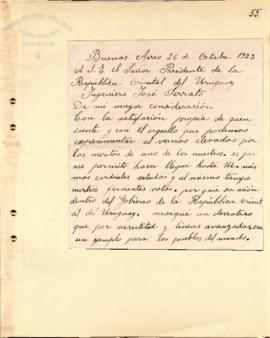 55
Buenos Aires 26 de Octubre 1923
A S. E. el Señor Presidente de la
República Oriental del Uruguay
Ingeniero José Serrato
De mi mayor consideración
Con la satisfación propia de quien
siente y con el orgullo que podemos
experimentar al vernos elevados por
los meritos de uno de los nuestros, es que
me permito hacer llegar hasta Ud. mis
mas cordiales saludos y al mismo tiempo
mis fervientes votos. por que su acción
dentro del Gobierno de la República Orient
al del Uruguay. marque un derrotero
que por rectitud y lineas avanzadas sea
un ejemplo para los pueblos del mundo.